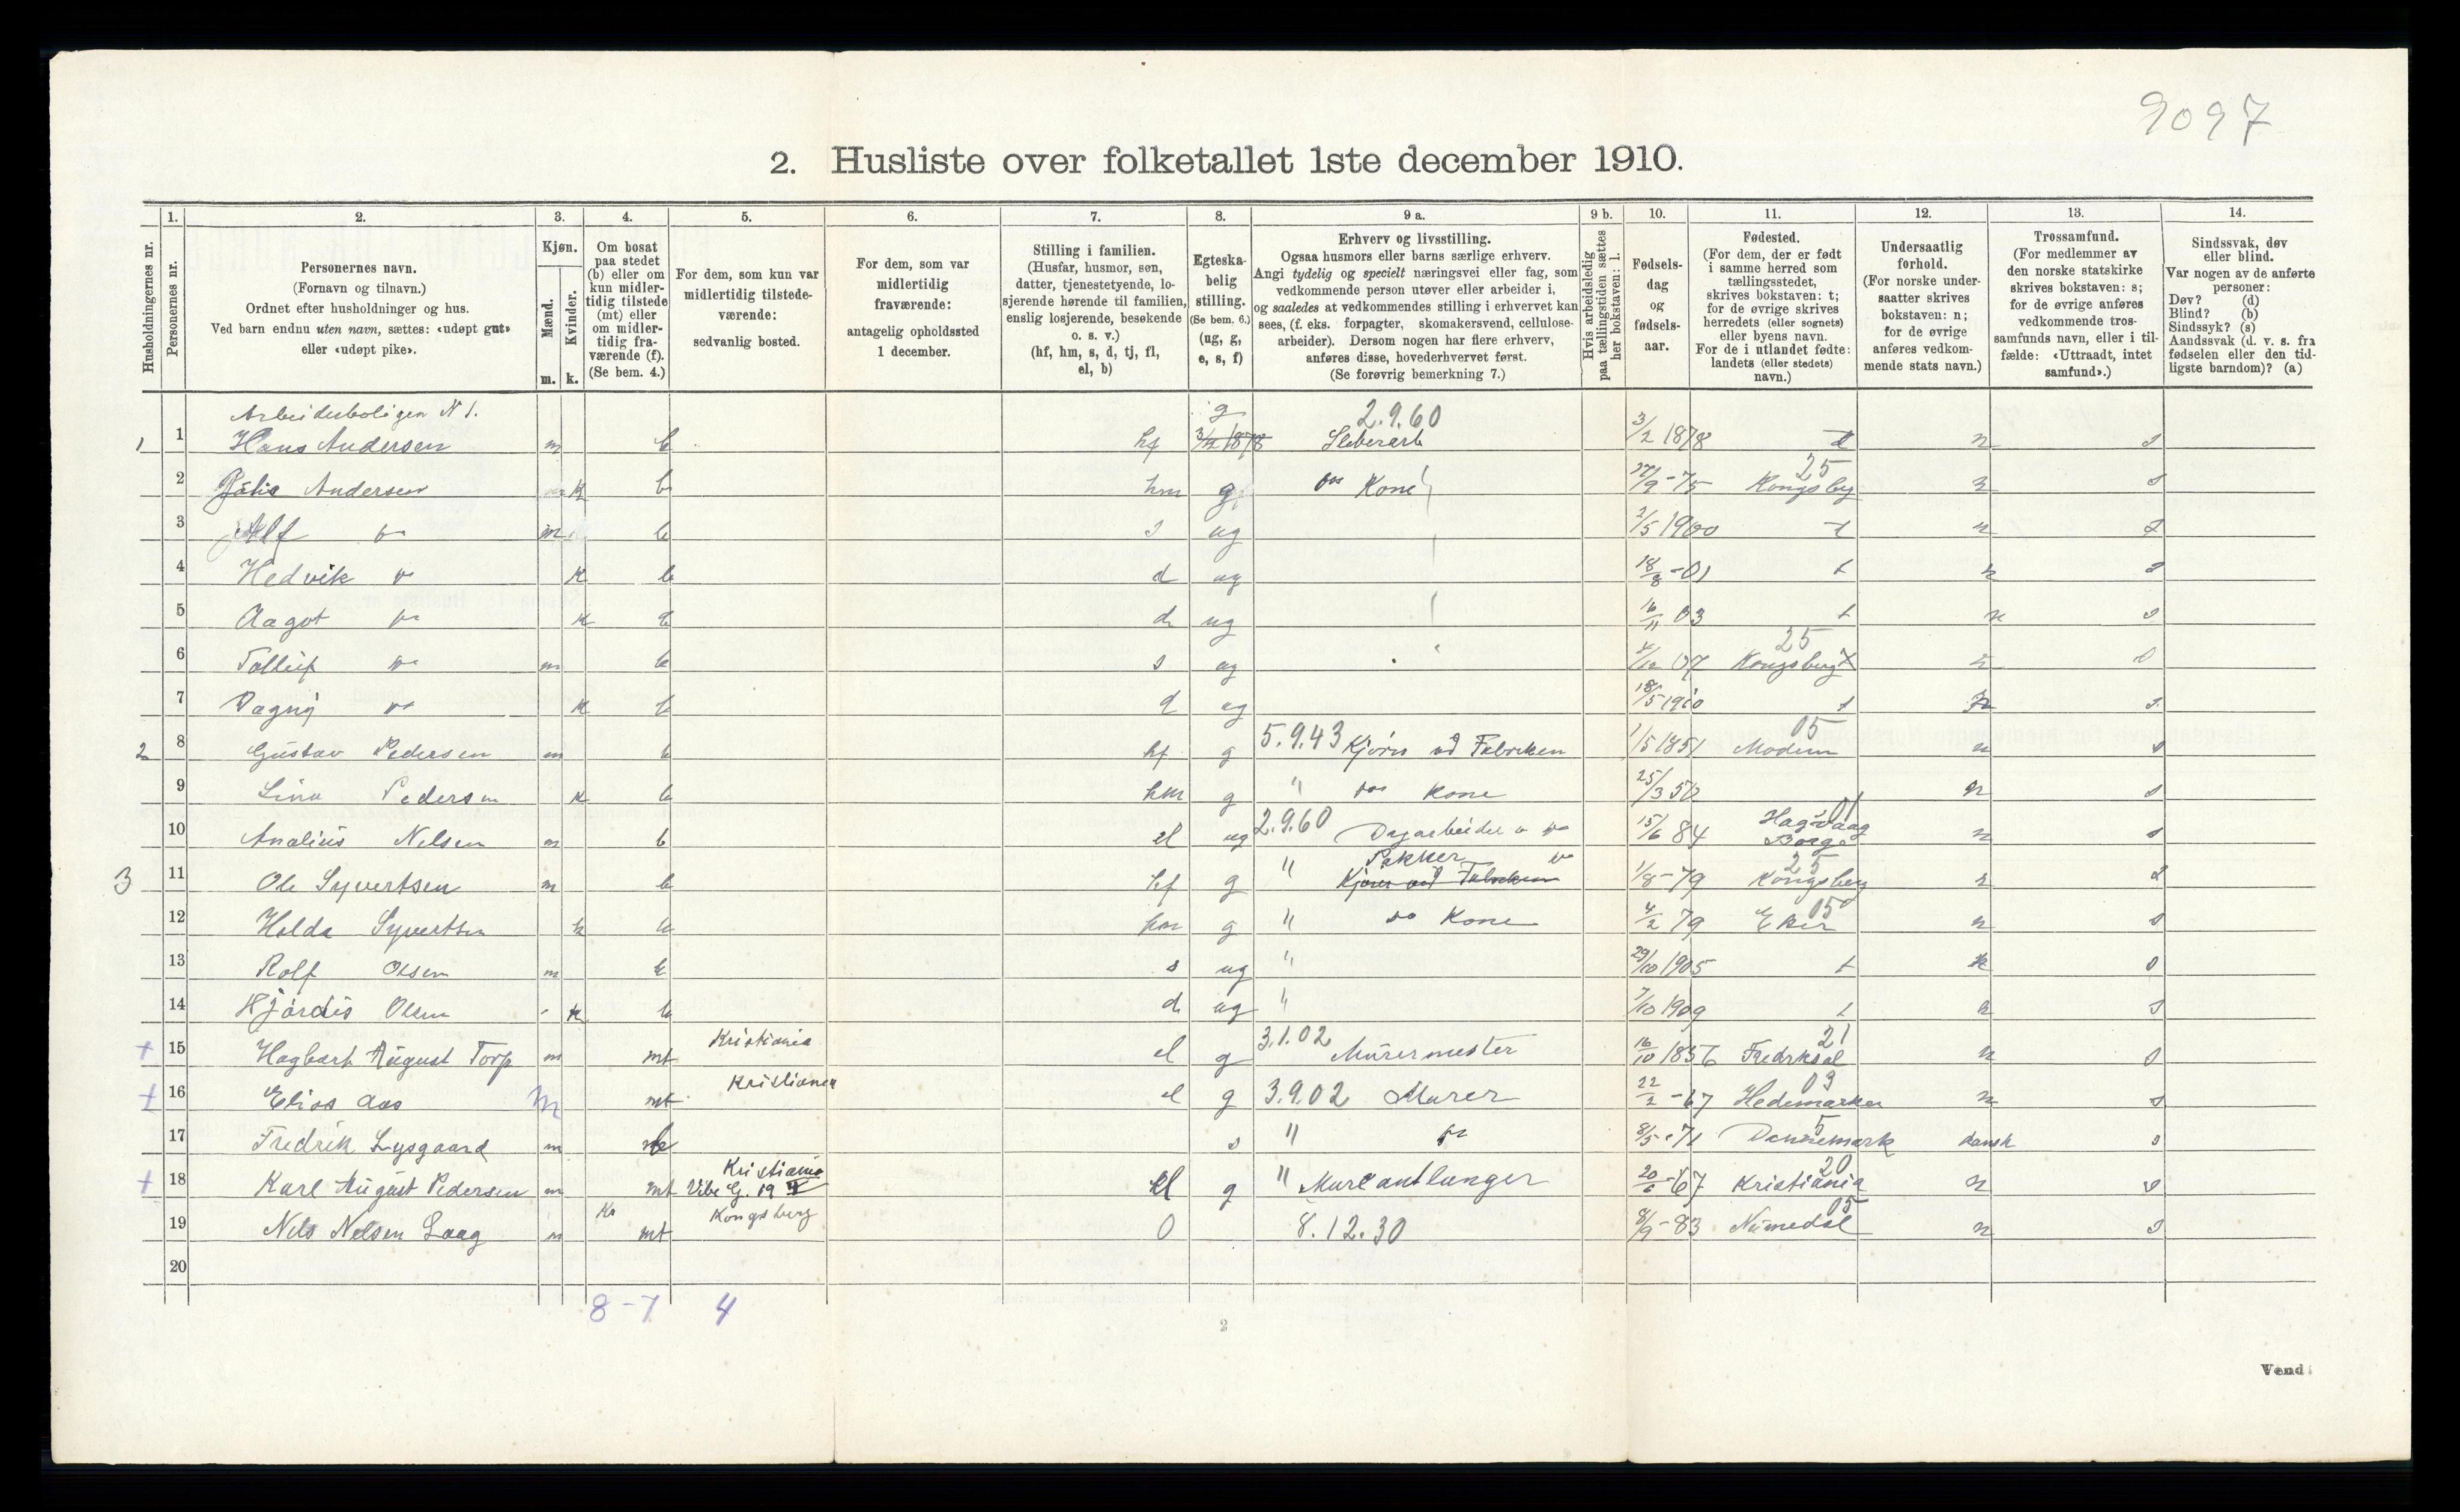 9097
2. Husliste over folketallet 1ste december 1910.
Husholdningernes nr.
1. Personernes nr.
2. Personernes navn.
(Fornavn og tilnavn.)
Ordnet efter husholdninger og hus.
Ved barn endnu uten navn, sættes: «udøpt gut»
eller «udøpt pike».
3. Kjøn.
Mænd. m.
Kvinder. k.
4. Om bosat
paa stedet
(b) eller om
kun midler-
tidig tilstede
(mt) eller
om midler-
tidig fra-
værende (f).
(Se bem. 4.)
5. For dem, som kun var
midlertidig tilstede-
værende:
sedvanlig bosted.
6. For dem, som var
midlertidig
fraværende:
antagelig opholdssted
1 december.
7. Stilling i familien.
(Husfar, husmor, søn,
datter, tjenestetyende, lo-
sjerende hørende til familien,
enslig losjerende, besøkende
o. s. v.)
(hf, hm, s, d, tj, fl,
el, b)
8. Egteska-
belig
stilling.
(Se bem. 6.)
(ug, g,
e, s, f)
9 a. Erhverv og livsstilling.
Ogsaa husmors eller barns særlige erhverv.
Angi tydelig og specielt næringsvei eller fag, som
vedkommende person utøver eller arbeider i,
og saaledes at vedkommendes stilling i erhvervet kan
sees, (f. eks. forpagter, skomakersvend, cellulose-
arbeider). Dersom nogen har flere erhverv,
anføres disse, hovederhvervet først.
(Se forøvrig bemerkning 7.)
9 b. Hvis arbeidsledig
paa tællingstiden sættes
her bokstaven: l.
10. Fødsels-
dag
og
fødsels-
aar.
11. Fødested.
(For dem, der er født
i samme herred som
tællingsstedet,
skrives bokstaven: t;
for de øvrige skrives
herredets (eller sognets)
eller byens navn.
For de i utlandet fødte:
landets (eller stedets)
navn.)
12. Undersaatlig
forhold.
(For norske under-
saatter skrives
bokstaven: n;
for de øvrige
anføres vedkom-
mende stats navn.)
13. Trossamfund.
(For medlemmer av
den norske statskirke
skrives bokstaven: s;
for de øvrige anføres
vedkommende tros-
samfunds navn, eller i til-
fælde: «Uttraadt, intet
samfund».)
14. Sindssvak, døv
eller blind.
Var nogen av de anførte
personer:
Døv? (d)
Blind? (b)
Sindssyk? (s)
Aandssvak (d. v. s. fra
fødselen eller den tid-
ligste barndom)? (a)
Arbeiderboligen N 1. g 2.9.60
1 1 Hans Andersen m b hf 3/2 1878 Sliberarb 3/2 1878 t n s
25
2 Andersen k b hm g Kone 17/9 -75 Kongsberg n s
3 Alf m b s ug 2/5 1900 t n s
4 Hedvik k b d ug 18/8 -01 t n s
5 Aagot k b d ug 16/11 03 t n s
25
6 Tolleif m b s ug 4/12 07 Kongsberg n s
7 Dagny k b d ug 18/5 1910 t n s
05
2 8 Gustav Pedersen m b hf g 5.9.43 Kjører ved Fabriken 1/5 1851 Modum n s
9 Lina Pedersen k b hm g " Kone 25/3 50 n s
01
10 Analius Nelsen m b el ug 2.9.60 Dagarbeider 15/6 84 n s
Pakker 25
3 11 Ole Syvertsen m b hf g " Kjører ved Fabriken 1/8 -79 Kongsberg n s
05
12 Holda Syvertsen k b hm g " Kone 4/2 79 Eker n s
13 Rolf Olsen m b s ug " 29/10 1905 t n s
14 Hjördis Olsen k b d ug " 7/10 1909 t n s
Kristiania 21
+ 15 Hagbart August Torp m mt el g 3.1.02 Mürermester 16/10 1856 Fredrksal n s
Kristiania 03
+ 16 Elias Aas m mt el g 3.9.02 Murer 22/2 -67 Hedemarken n s
5
17 Fredrik Lysgaard m b s " 8/5 -71 Dannemark dansk s
Kristiania 20
+ 18 Karl August Pedersen m mt Vibe G. 19 el g " Murcantlanger 20/6 -67 Kristiania n s
Kongsberg 05
19 Nels Nelsen Laag m mt 0 8.12.30 8/9 -83 Numedal n s
20
8 - 7 4
2
Vend